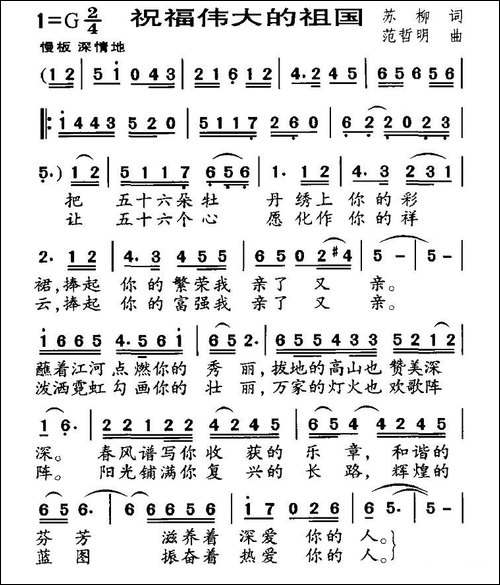 1=G 2/4 祝福伟大的祖国 苏柳 词
慢板 深情地 范哲明 曲
(1 2 | 5 i 0 4 3 | 2 1 6 1 2 | 4. 2 4 5 | 6 5 6 5 6
‖: i 4 4 3 5 2 0 | 5 1 1 7 2 6 0 | 6 2 2 0 2 3
5.) 1 2 | 5 1 1 7 6 5 6 | 1. 1 2 | 4. 3 2 3 1
把 五十六朵牡 丹绣上你的彩
让 五十六个心 愿化作你的祥
2. 1 2 | 4. 3 4 5 5 | 6 5 0 2 #4 | 5 - | 5 -
裙,捧起 你的繁荣我 亲了又 亲。
云,捧起 你的富强我 亲了又 亲。
i 6 6 5 4. 5 6 i | 6 5 2. | 6 5 5 4 3 3 | 5 2 1 2
蘸着江河点燃你的 秀丽,拔地的高山也 赞美深
泼洒霓虹勾画你的 壮丽,万家的灯火也 欢歌阵
1 6. | 2 2 1 2 2 | 4 2 4 5 | 6 2 4 5 4 2 4 5
深。 春风谱写你 收获的 乐章,和谐的
阵。 阳光铺满你 复兴的 长路,辉煌的
6 5 6. | 6 5 6 5 | i 7 0 2 6 | 5 - | 6 - | 5 -
芬芳 滋养着 深爱你的 人。
蓝图 振奋着 热爱你的 人。